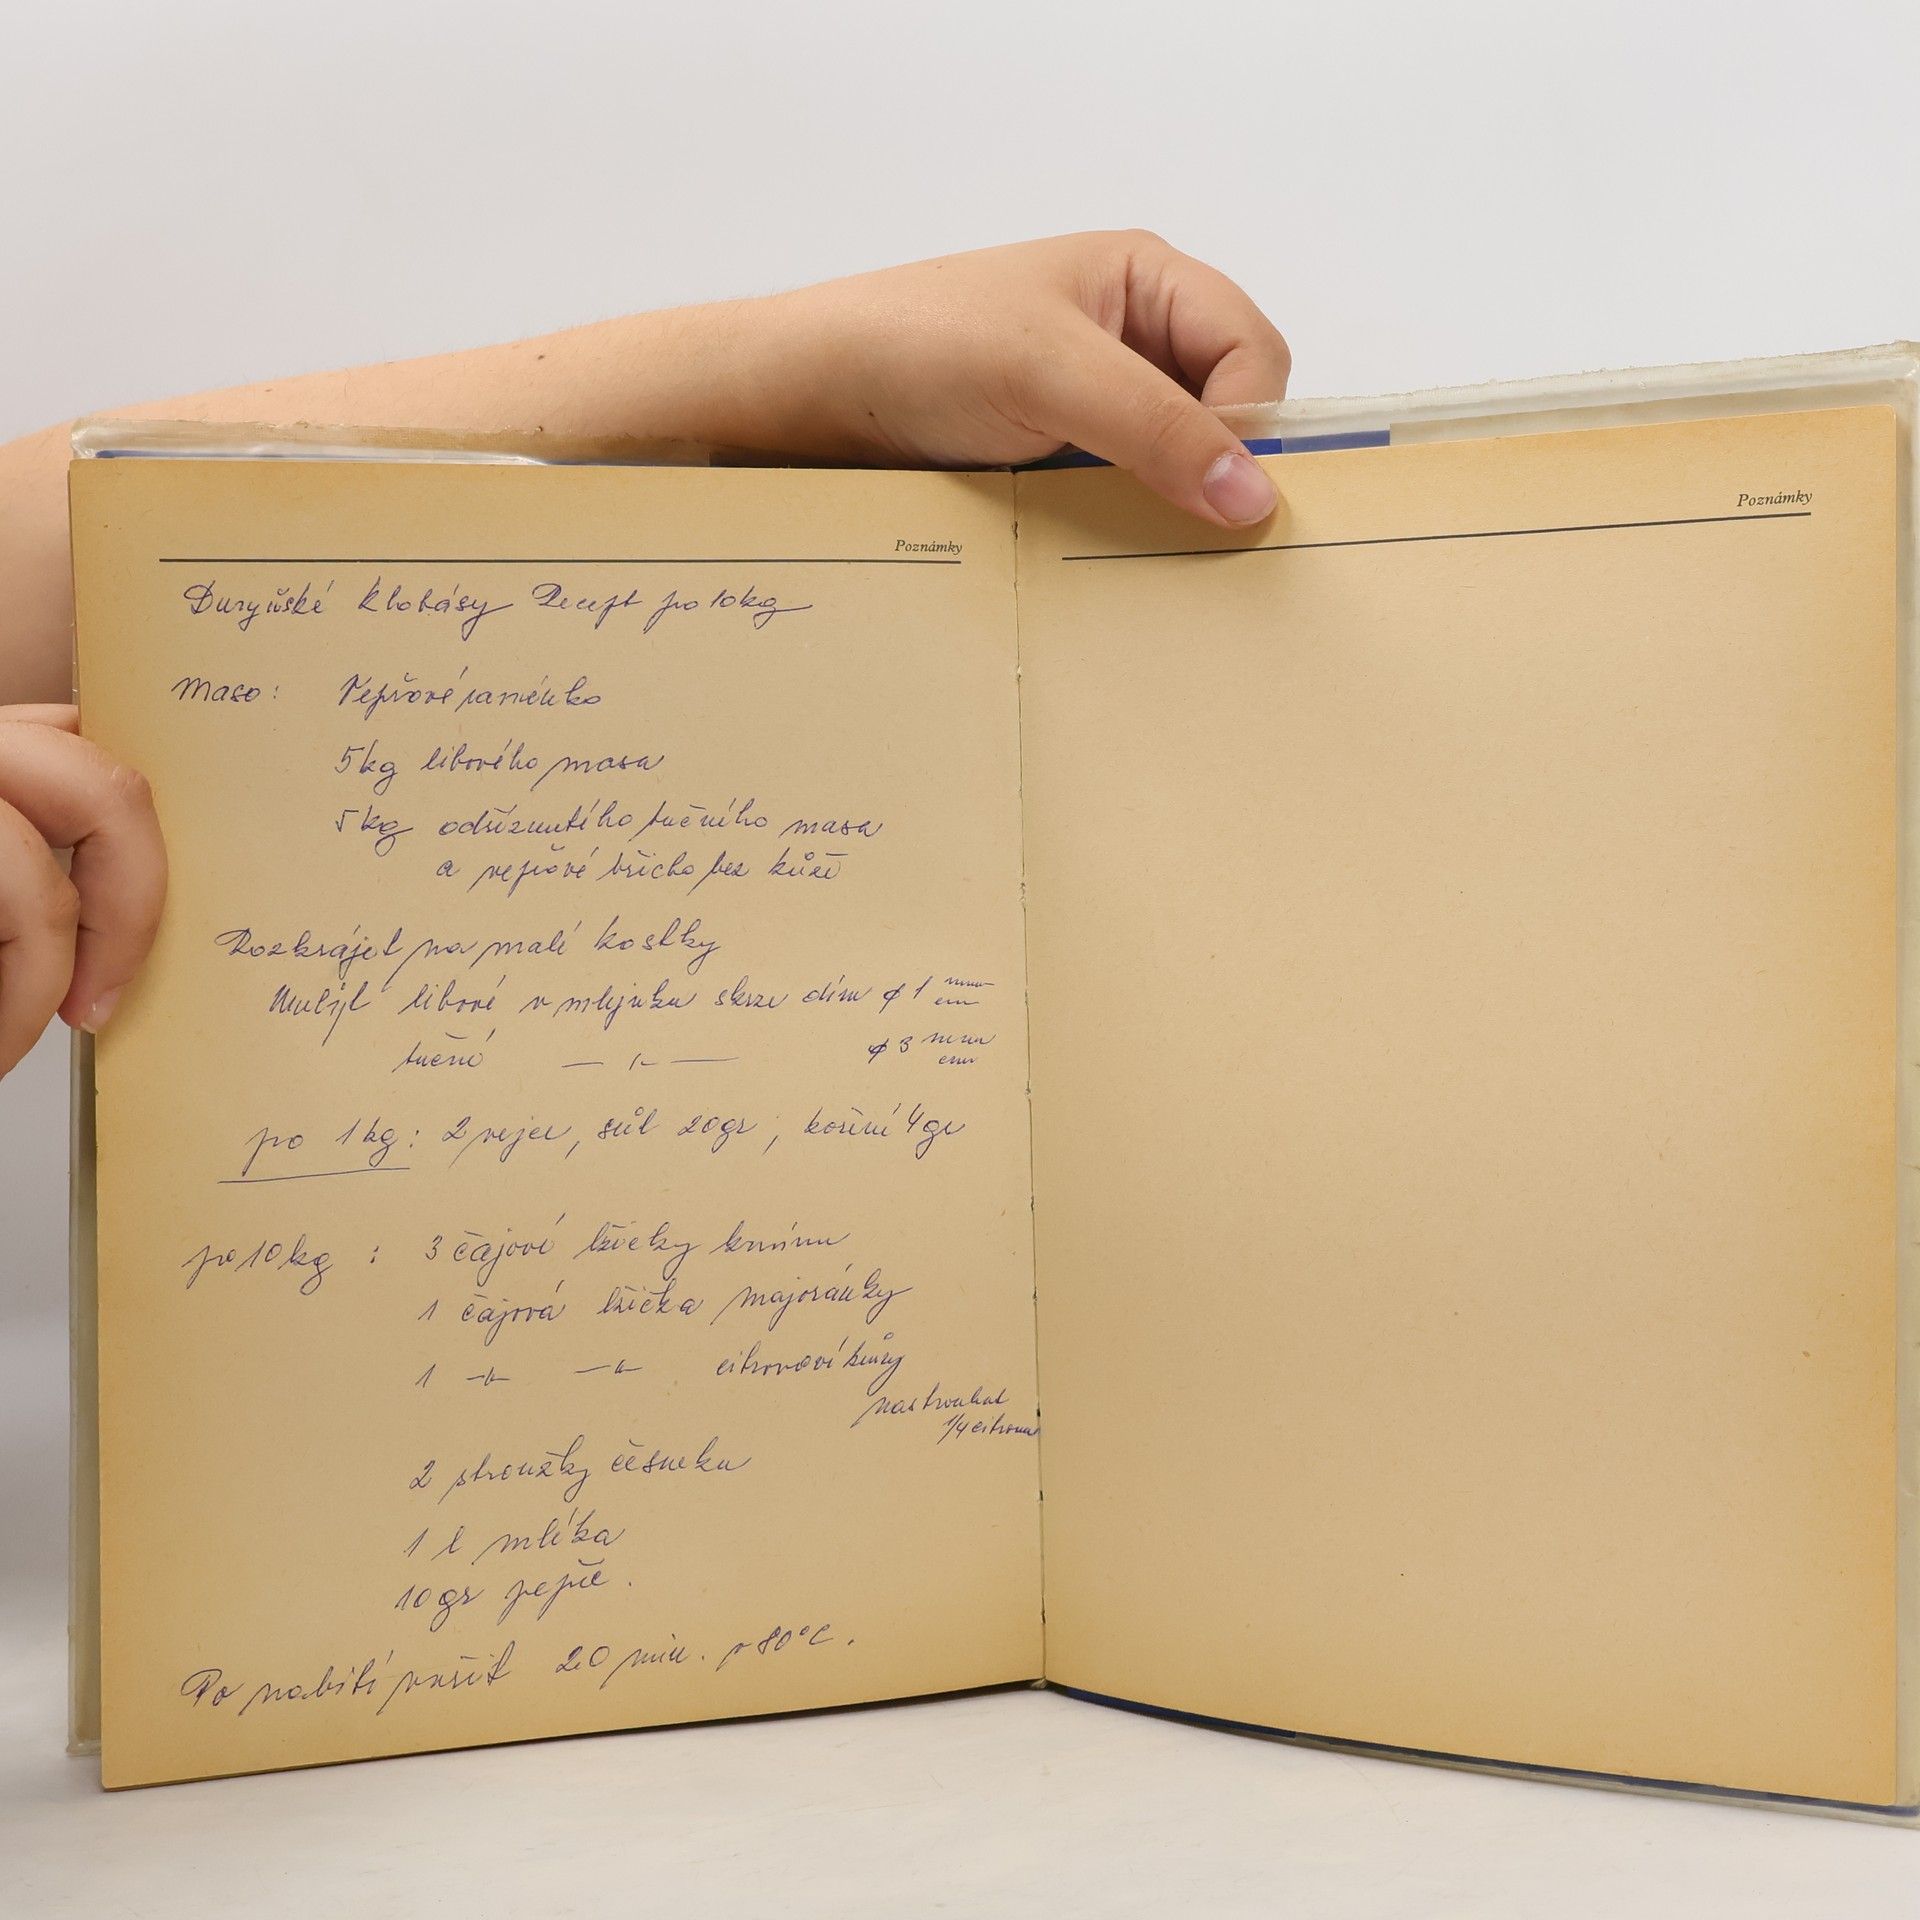 Poznámky
Duryňské klobásy Recept po 10kg
Maso: Vepřové raménko
5kg libového masa
5kg odříznutého tučného masa
a vepřové břicho bez kůže
Rozkrájet na malé kostky
Umlýt libové v mlýnku skrze díru ϕ 1 mm
cm
tučné — 〃 — ϕ 3 mm
cm
po 1kg: 2 vejce, sůl 20gr, koření 4gr
po 10kg : 3 čajové lžičky kmínu
1 čajová lžička majoránky
1 -〃- -〃- citronové kůry
nastrouhat
1/4 citronu
2 stroužky česneku
1 l mléka
10gr pepře.
Po nabití vařit 20 min. v 80°C.
Poznámky